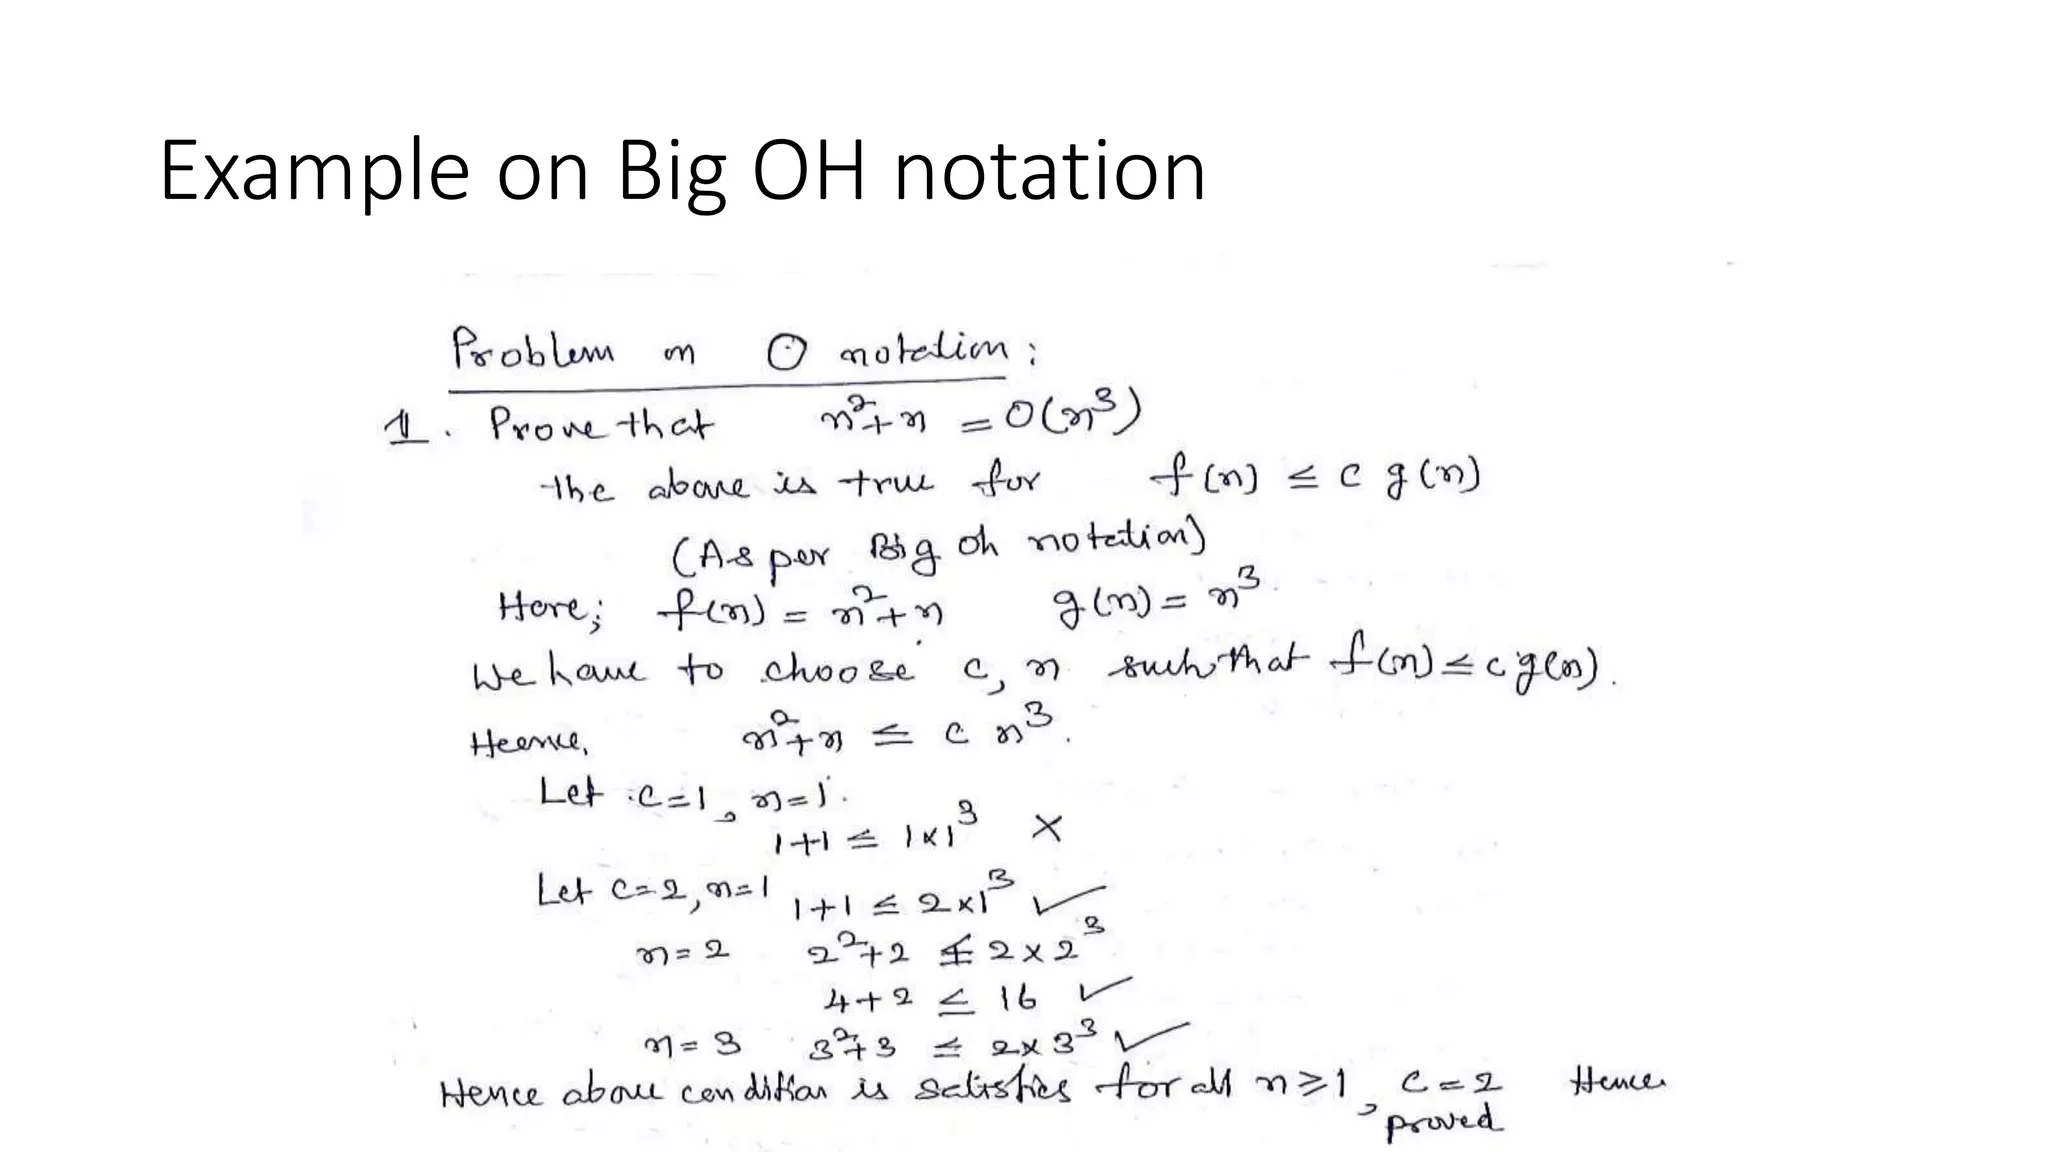 Example on Big OH notation
Problem on O notation:
1. Prove that n²+n = O(n³)
the above is true for f(n) ≤ c g(n)
(As per Big oh notation)
Here; f(n) = n²+n g(n) = n³.
We have to choose c, n such that f(n) ≤ c g(n).
Heence, n²+n ≤ c n³.
Let c=1, n=1.
1+1 ≤ 1×1³ ×
Let c=2, n=1 1+1 ≤ 2×1³ ✓
n=2 2²+2 ≤ 2×2³
4+2 ≤ 16 ✓
n=3 3²+3 ≤ 2×3³ ✓
Hence above condition is satisfies for all n≥1, c=2 Hence
proved